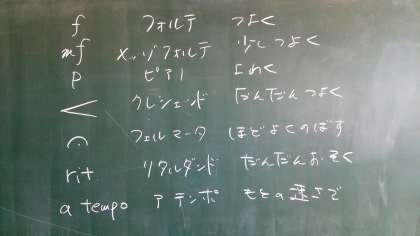 f フォルテ つよく
mf メッゾフォルテ 少しつよく
P ピアノ よわく
クレシェンド だんだんつよく
フェルマータ ほどよくのばす
rit. リタルダンド だんだんおそく
a tempo アテンポ もとの速さで